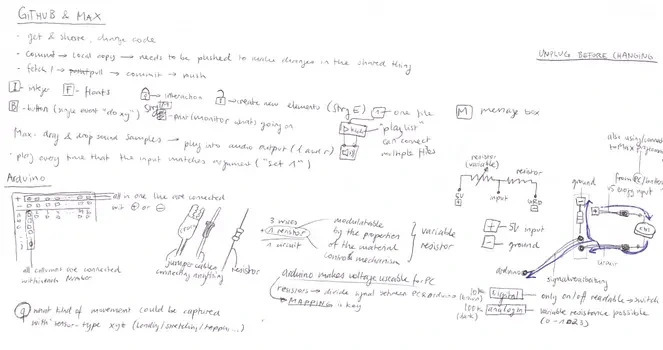 GITHUB & MAX
- get & share, change code
- commit → local copy → needs to be pushed to make changes in the shared thing
- fetch / pull → commit → push
UNPLUG BEFORE CHANGING
I - integer F - floats
interaction
create new elements (Strg E)
one file
M message box
B - button (single event "do xy")
print/monitor what's going on
"playlist"
can connect
multiple files
Max - drag & drop sound samples → plug into audio output (l and r)
- play every time that the input matches argument ("set 1")
Arduino
all in one line are connected
with + or -
all columns are connected
within each number
jumper cables
connecting anything
resistor
3 wires
+ 1 resistor
1 circuit
modulatable
by the properties
of the material
control mechanism
variable
resistor
resistor
(variable)
resistor
5V
input
GND
+ 5V input
- ground
arduino makes voltage useable for PC
resistors → divide signal between PC & Arduino
→ MAPPING is key
ground
input
arduino
10k
digital - only on/off readable → switch
100k
(dark)
analogin - variable resistance possible
(0 - 1023)
q what kind of movement could be captured
with sensor-type xyz (bending/stretching/tapping...)